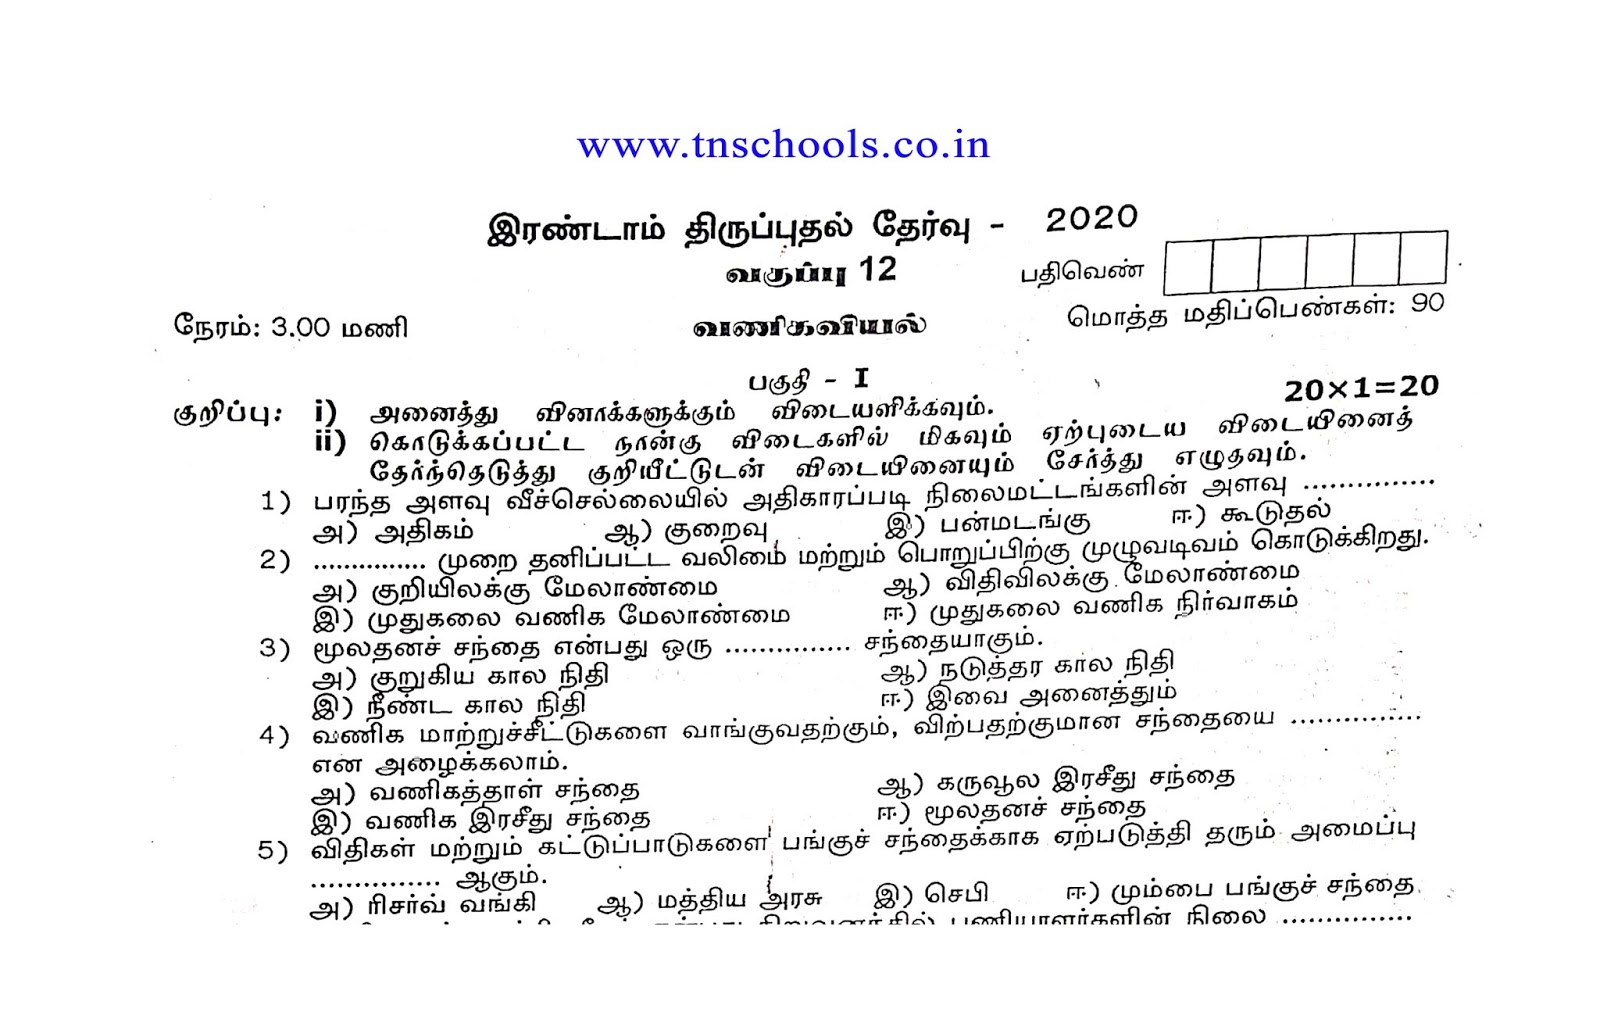 www.tnschools.co.in
இரண்டாம் திருப்புதல் தேர்வு - 2020
வகுப்பு 12
பதிவெண்
நேரம்: 3.00 மணி
வணிகவியல்
மொத்த மதிப்பெண்கள்: 90
பகுதி - I
20×1=20
குறிப்பு: i) அனைத்து வினாக்களுக்கும் விடையளிக்கவும்.
ii) கொடுக்கப்பட்ட நான்கு விடைகளில் மிகவும் ஏற்புடைய விடையினைத்
தேர்ந்தெடுத்து குறியீட்டுடன் விடையினையும் சேர்த்து எழுதவும்.
1) பரந்த அளவு வீச்செல்லையில் அதிகாரப்படி நிலைமட்டங்களின் அளவு ...............
அ) அதிகம் ஆ) குறைவு இ) பன்மடங்கு ஈ) கூடுதல்
2) ............... முறை தனிப்பட்ட வலிமை மற்றும் பொறுப்பிற்கு முழுவடிவம் கொடுக்கிறது.
அ) குறியிலக்கு மேலாண்மை ஆ) விதிவிலக்கு மேலாண்மை
இ) முதுகலை வணிக மேலாண்மை ஈ) முதுகலை வணிக நிர்வாகம்
3) மூலதனச் சந்தை என்பது ஒரு ............... சந்தையாகும்.
அ) குறுகிய கால நிதி ஆ) நடுத்தர கால நிதி
இ) நீண்ட கால நிதி ஈ) இவை அனைத்தும்
4) வணிக மாற்றுச்சீட்டுகளை வாங்குவதற்கும், விற்பதற்குமான சந்தையை ...............
என அழைக்கலாம்.
அ) வணிகத்தாள் சந்தை ஆ) கருவூல இரசீது சந்தை
இ) வணிக இரசீது சந்தை ஈ) மூலதனச் சந்தை
5) விதிகள் மற்றும் கட்டுப்பாடுகளை பங்குச் சந்தைக்காக ஏற்படுத்தி தரும் அமைப்பு
............... ஆகும்.
அ) ரிசர்வ் வங்கி ஆ) மத்திய அரசு இ) செபி ஈ) மும்பை பங்குச் சந்தை
நிறுவனத்தில் பணியாளர்களின் நிலை ...............